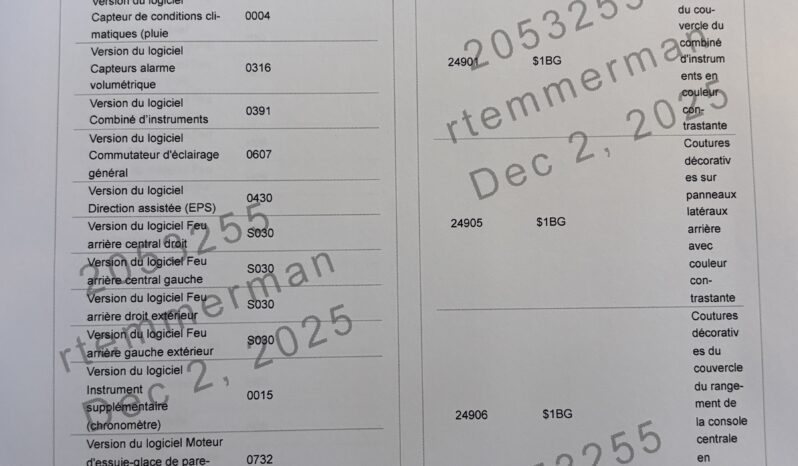 Version du logiciel
Capteur de conditions cli-
matiques (pluie
0004
Version du logiciel
Capteurs alarme
volumétrique
0316
Version du logiciel
Combiné d'instruments
0391
Version du logiciel
Commutateur d'éclairage
général
0607
Version du logiciel
Direction assistée (EPS)
0430
Version du logiciel Feu
arrière central droit
S030
Version du logiciel Feu
arrière central gauche
S030
Version du logiciel Feu
arrière droit extérieur
S030
Version du logiciel Feu
arrière gauche extérieur
S030
Version du logiciel
Instrument
supplémentaire
(chronomètre)
0015
Version du logiciel Moteur
d'essuie-glace de pare-
0732
24901
$1BG
du cou-
vercle du
combiné
d'instrum
ents en
couleur
con-
trastante
24905
$1BG
Coutures
décorativ
es sur
panneaux
latéraux
arrière
avec
couleur
con-
trastante
24906
$1BG
Coutures
décorativ
es du
couvercle
du range-
ment de
la console
centrale
en
2053255
rtemmerman
Dec 2, 2025
2053255
rtemmerman
Dec 2, 2025
53255